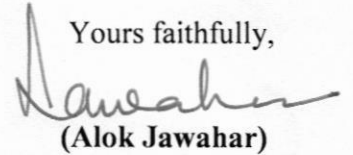 Yours faithfully,
Jawahar
(Alok Jawahar)